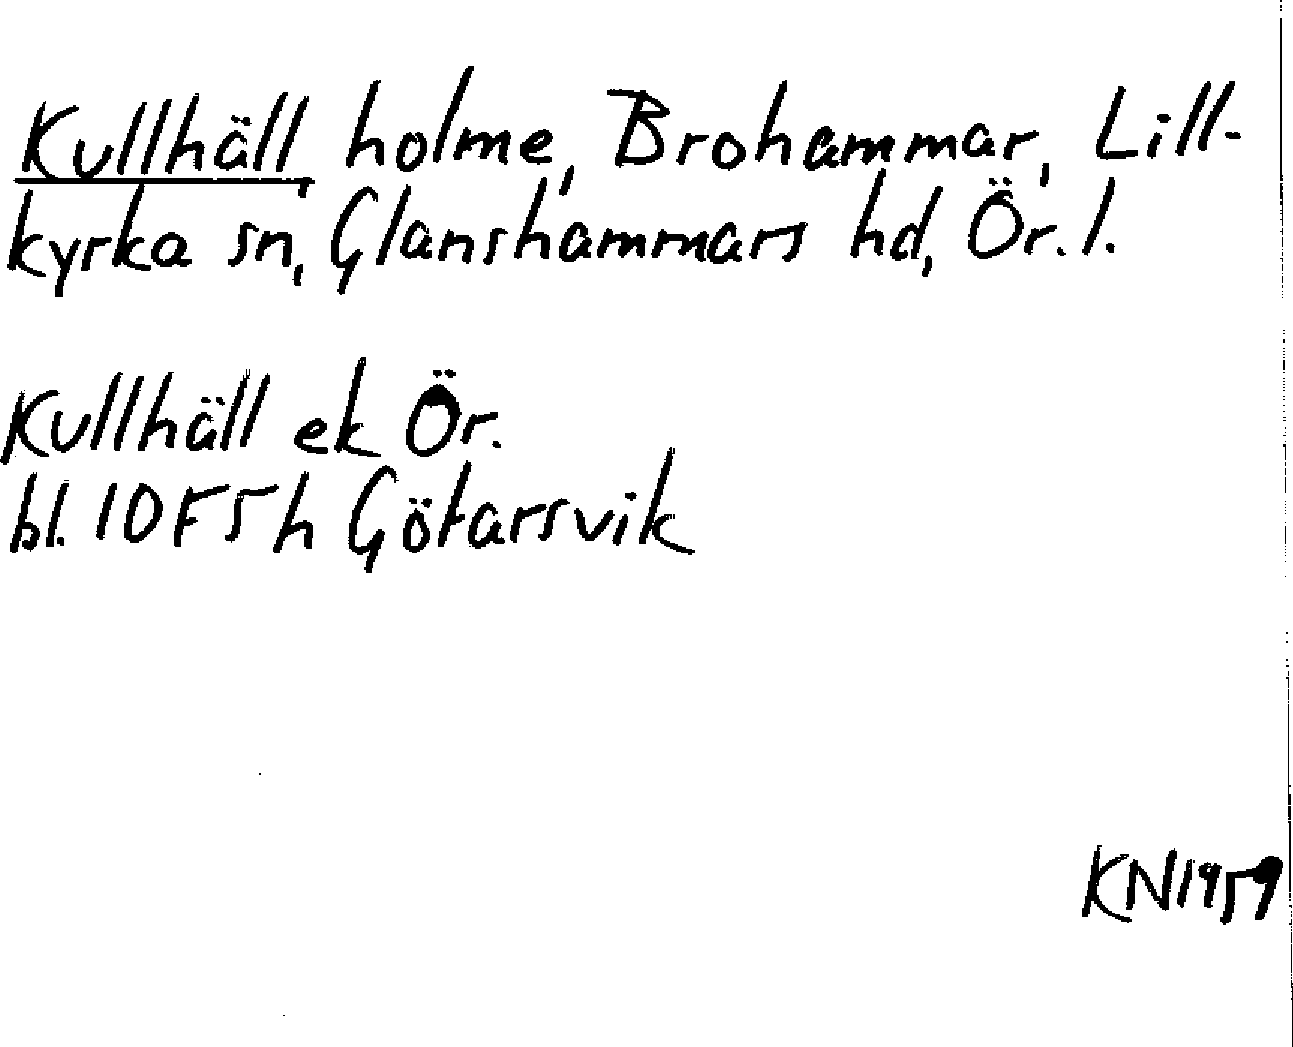 Kullhäll, holme, Brohammar, Lill-
kyrka sn, Glanshammars hd, Ör. l.
Kullhäll ek Ör.
bl. 10F5h Götarsvik
KN1959